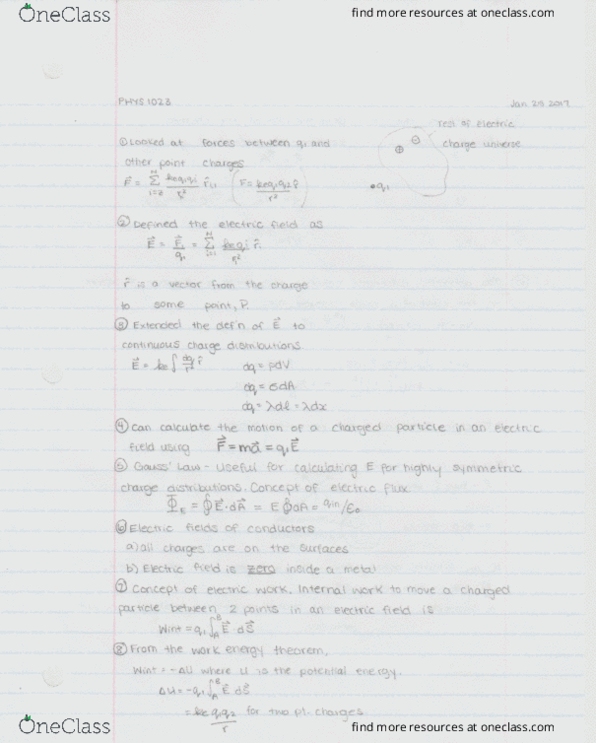 OneClass
find more resources at oneclass.com
PHYS 1028
Jan 2017
rest of electric
charge universe
① Looked at forces between q₁ and
other point charges
F⃗ = Σ keq₁qi/r² r̂ (F = keq₁q₂ r̂/r²)
⊕ ⊖
•q₁
② Defined the electric field as
E⃗ = F⃗/q₁ = Σ keqi/r² r̂
r̂ is a vector from the charge
to some point, P.
③ Extended the def'n of E⃗ to
continuous charge distributions
E⃗ = ke∫ dq/r² r̂
dq = ρdV
dq = σdA
dq = λdl = λdx
④ Can calculate the motion of a charged particle in an electric
field using F⃗ = ma⃗ = q₁E⃗
⑤ Gauss' Law - Useful for calculating E for highly symmetric
charge distributions. Concept of electric flux
Φ_E = ∮E⃗·dA⃗ = E∮dA = qin/ε₀
⑥ Electric fields of conductors
a) all charges are on the surfaces
b) Electric field is zero inside a metal
⑦ Concept of electric work. Internal work to move a charged
particle between 2 points in an electric field is
Wint = q₁∫_A^B E⃗·ds⃗
⑧ From the work energy theorem,
Wint = -ΔU where U is the potential energy.
ΔU = -q₁∫_A^B E⃗·ds⃗
= keq₁q₂/r for two pt. charges
OneClass
find more resources at oneclass.com